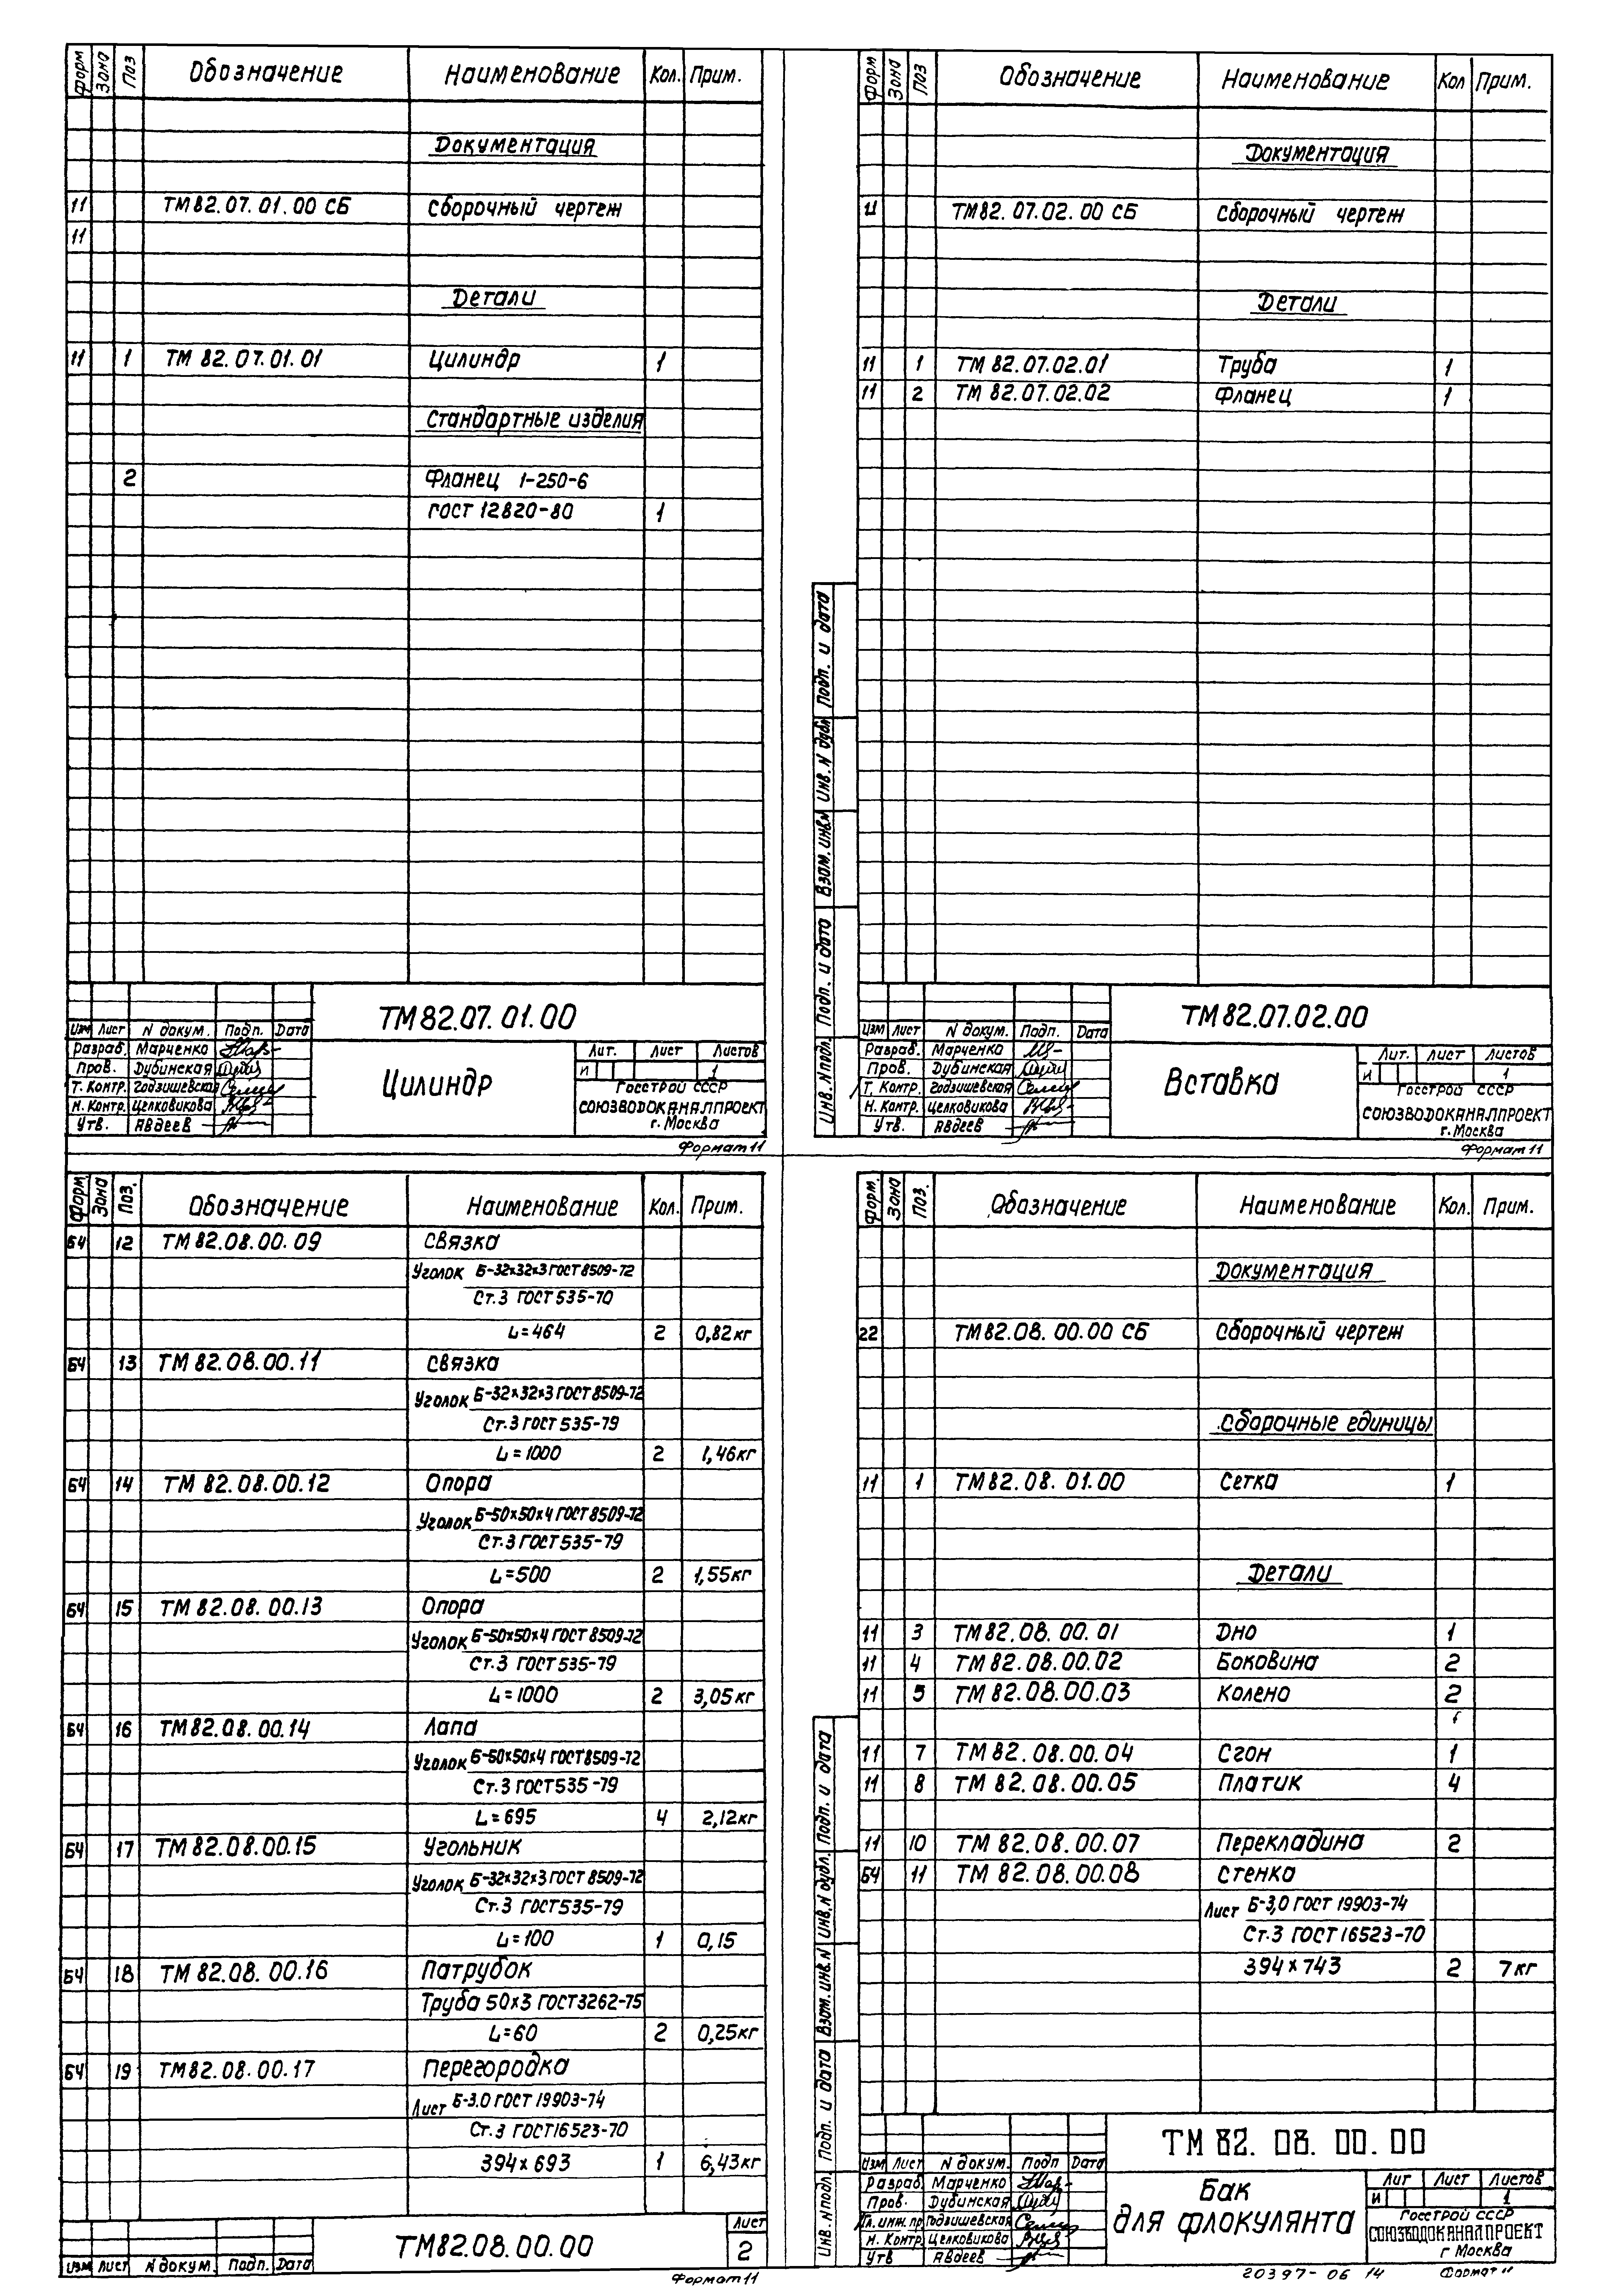 Форм Зона Поз Обозначение Наименование Кол. Прим.
Документация
11 ТМ82.07.01.00 СБ Сборочный чертеж
11
Детали
11 1 ТМ 82.07.01.01 Цилиндр 1
Стандартные изделия
2 Фланец 1-250-6
ГОСТ 12820-80 1
ТМ82.07.01.00
Изм Лист N докум. Подп. Дата
Разраб. Марченко
Пров. Дубинская
Т. Контр. Годзишевская
Н. Контр. Целковикова
Утв. Авдеев
Цилиндр
Лит. Лист Листов
И 1
Госстрой СССР
СОЮЗВОДОКАНАЛПРОЕКТ
г. Москва
Формат 11
Форм Зона Поз Обозначение Наименование Кол Прим.
Документация
11 ТМ82.07.02.00 СБ Сборочный чертеж
Детали
11 1 ТМ 82.07.02.01 Труба 1
11 2 ТМ 82.07.02.02 Фланец 1
Инв. N подл. Подп. и дата Взам. инв. N Инв. N дубл Подп. и дата
ТМ82.07.02.00
Изм Лист N докум. Подп. Дата
Разраб. Марченко
Пров. Дубинская
Т. Контр. Годзишевская
Н. Контр. Целковикова
Утв. Авдеев
Вставка
Лит. Лист Листов
И 1
Госстрой СССР
СОЮЗВОДОКАНАЛПРОЕКТ
г. Москва
Формат 11
Форм Зона Поз. Обозначение Наименование Кол. Прим.
БЧ 12 ТМ 82.08.00.09 Связка
Уголок Б-32х32х3 ГОСТ 8509-72
Ст.3 ГОСТ 535-70
L=464 2 0,82кг
БЧ 13 ТМ 82.08.00.11 Связка
Уголок Б-32х32х3 ГОСТ 8509-72
Ст.3 ГОСТ 535-79
L=1000 2 1,46кг
БЧ 14 ТМ 82.08.00.12 Опора
Уголок Б-50х50х4 ГОСТ 8509-72
Ст.3 ГОСТ 535-79
L=500 2 1,55кг
БЧ 15 ТМ 82.08.00.13 Опора
Уголок Б-50х50х4 ГОСТ 8509-72
Ст.3 ГОСТ 535-79
L=1000 2 3,05кг
БЧ 16 ТМ82.08.00.14 Лапа
Уголок Б-50х50х4 ГОСТ 8509-72
Ст.3 ГОСТ 535-79
L=695 4 2,12кг
БЧ 17 ТМ 82.08.00.15 Угольник
Уголок Б-32х32х3 ГОСТ 8509-72
Ст.3 ГОСТ 535-79
L=100 1 0,15
БЧ 18 ТМ 82.08.00.16 Патрубок
Труба 50х3 ГОСТ 3262-75
L=60 2 0,25кг
БЧ 19 ТМ82.08.00.17 Перегородка
Лист Б-3.0 ГОСТ 19903-74
Ст.3 ГОСТ 16523-70
394х693 1 6,43кг
Изм Лист N докум. Подп. Дата
ТМ82.08.00.00
Лист
2
Формат 11
Форм. Зона Поз. Обозначение Наименование Кол. Прим.
Документация
22 ТМ82.08.00.00 СБ Сборочный чертеж
Сборочные единицы
11 1 ТМ82.08.01.00 Сетка 1
Детали
11 3 ТМ82.08.00.01 Дно 1
11 4 ТМ 82.08.00.02 Боковина 2
11 5 ТМ 82.08.00.03 Колено 2
11 7 ТМ 82.08.00.04 Сгон 1
11 8 ТМ 82.08.00.05 Платик 4
11 10 ТМ 82.08.00.07 Перекладина 2
БЧ 11 ТМ 82.08.00.08 Стенка
Лист Б-3,0 ГОСТ 19903-74
Ст.3 ГОСТ 16523-70
394х743 2 7кг
Инв. N подл. Подп. и дата Взам. инв. N Инв. N дубл. Подп. и дата
ТМ 82.08.00.00
Изм Лист N докум. Подп Дата
Разраб. Марченко
Пров. Дубинская
Гл. инж. пр. Годзишевская
Н. Контр. Целковикова
Утв Авдеев
Бак
для флокулянта
Лит Лист Листов
И 1
Госстрой СССР
СОЮЗВОДОКАНАЛПРОЕКТ
г Москва
20397-06 14
Формат 11